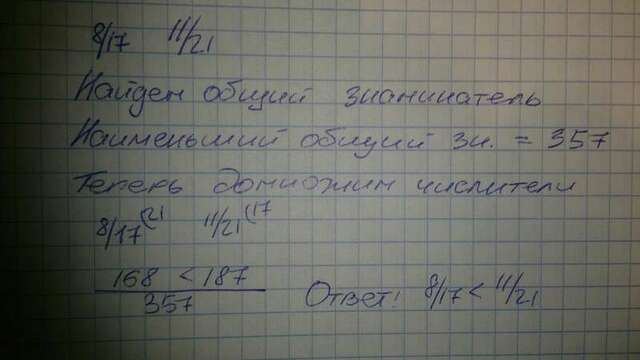 8/17 11/21
Найдем общий знаминатель
Наименьший общий зн. = 357
Теперь домножим числители
8/17(21 11/21(17
168 < 187
357
Ответ: 8/17 < 11/21